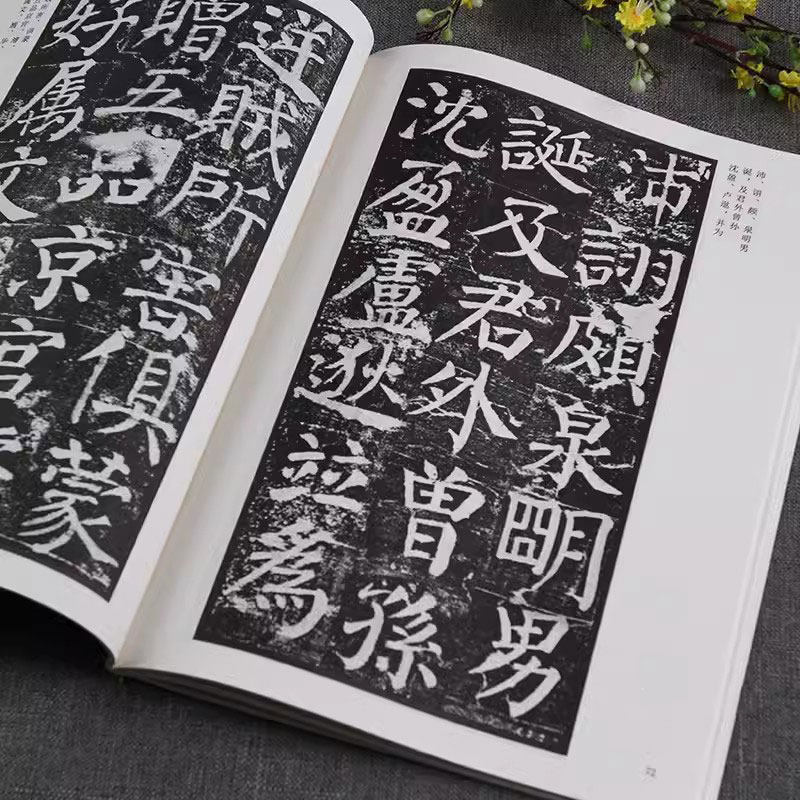 沛、诩、颇、泉明男
诞，及君外曾孙
沈盈、卢逖，并为
沛詡頗泉明男
誕及君外曾孫
沈盈盧逖竝爲
72
逆賊所害俱蒙
贈五品京官
好屬文